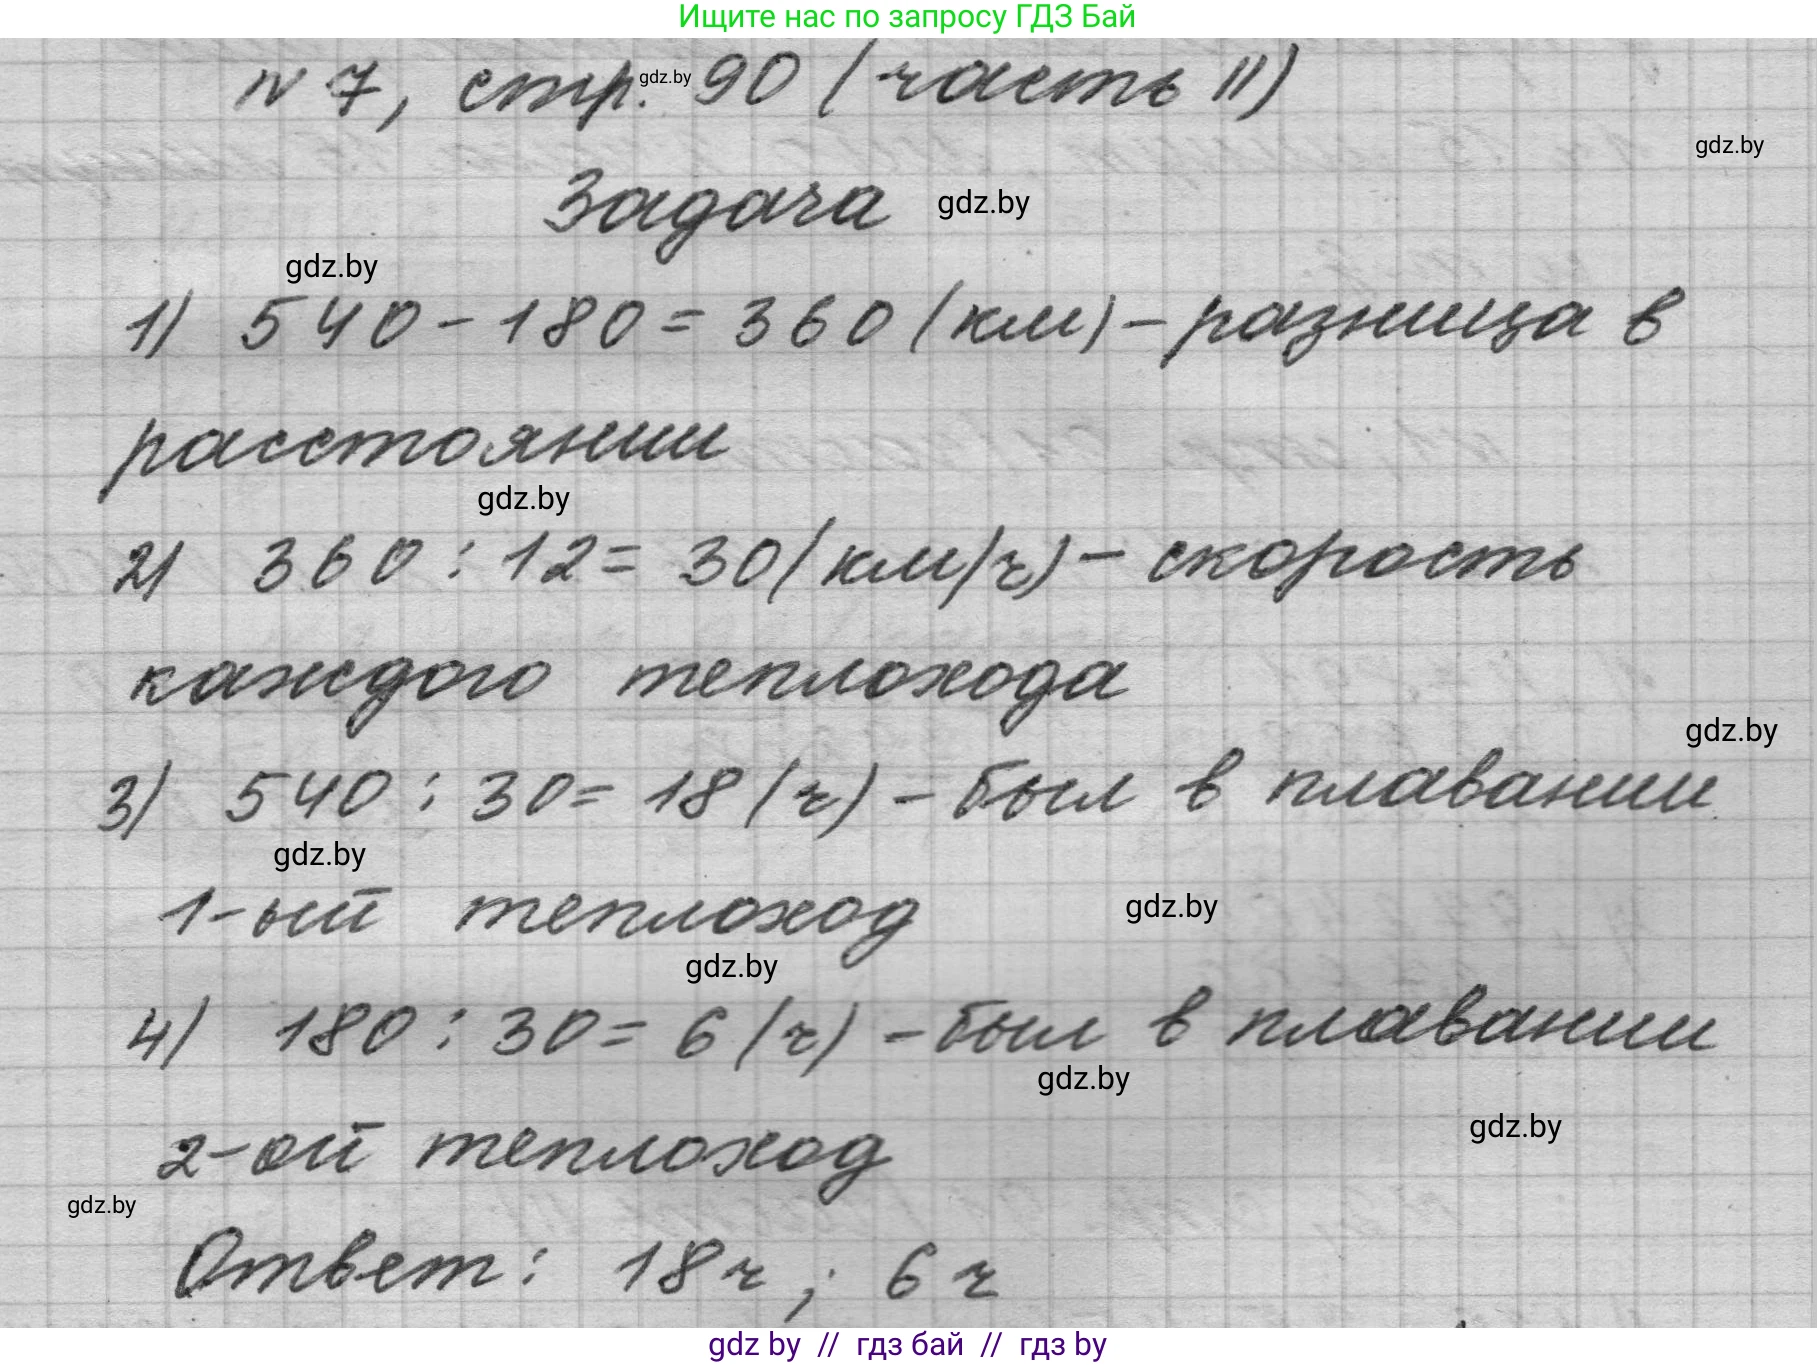 Ищите нас по запросу ГДЗ Бай
N 7, стр. 90 (часть II)
gdz.by
gdz.by
Задача
gdz.by
gdz.by
1) 540 - 180 = 360 (км) - разница в
расстоянии
gdz.by
2) 360 : 12 = 30 (км/ч) - скорость
каждого теплохода
gdz.by
3) 540 : 30 = 18 (ч) - был в плавании
gdz.by
1-ый теплоход
gdz.by
gdz.by
4) 180 : 30 = 6 (ч) - был в плавании
gdz.by
gdz.by
2-ой теплоход
gdz.by
Ответ: 18 ч ; 6 ч
gdz by // гдз бай // гдз by